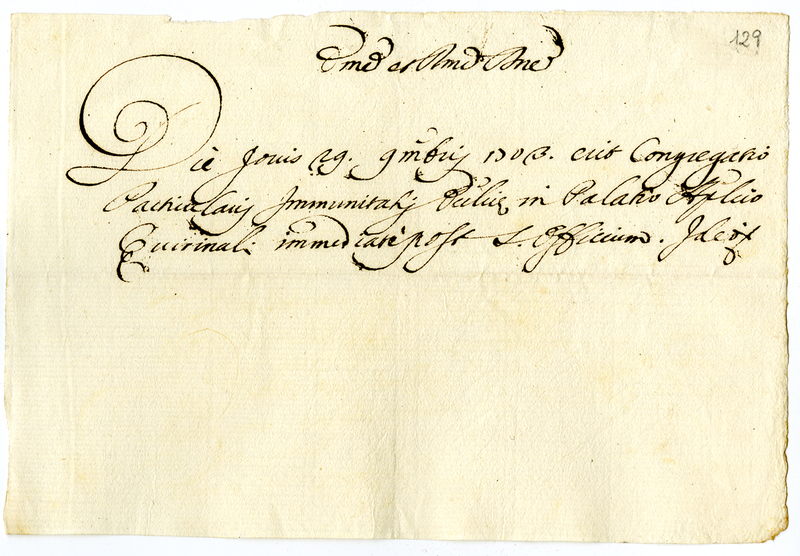 129
Emẽ et Rmẽ Dne
Die Jouis 29. 9mbris 1703. erit Congregatio
Particularis Immunitatis in Palatio Aplico
Quirinali immediatè post S. Officium. Ideo